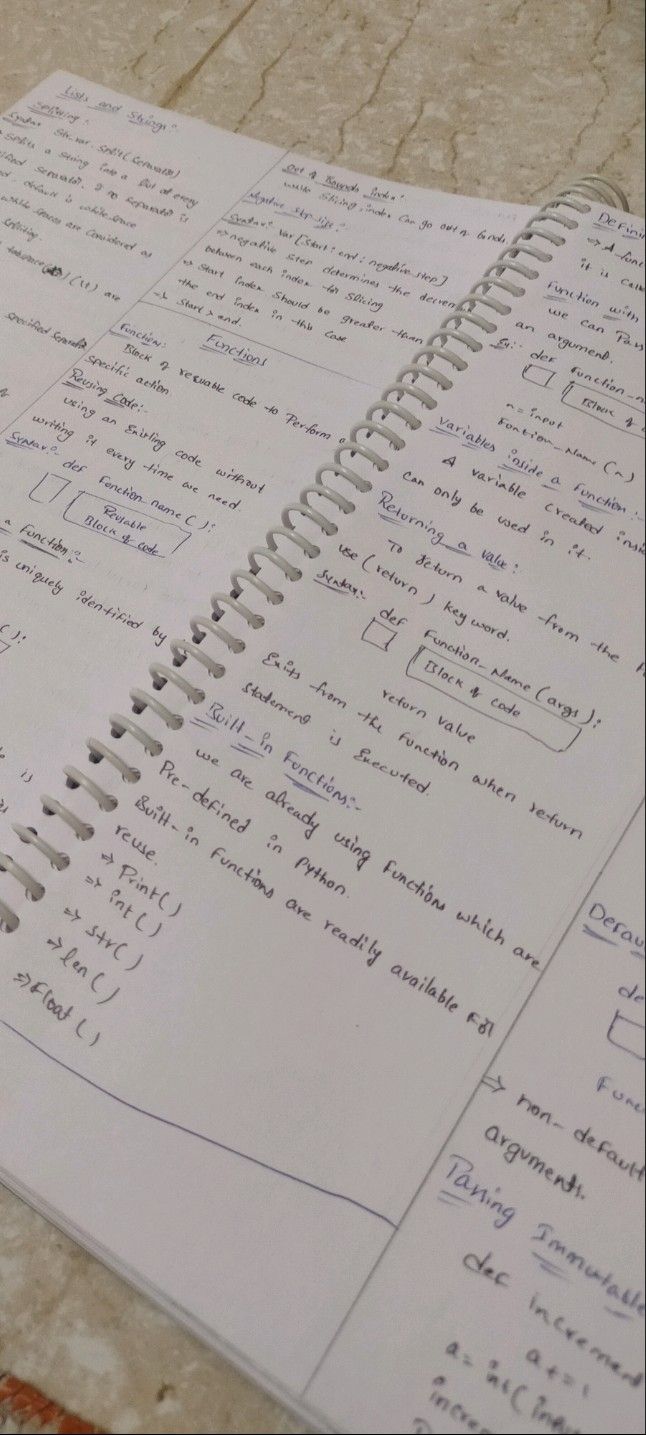 Lists and Strings:
Splitting:
Syntax Str-var.split(separator)
Splits a string into a list at every
separator. if no separator is
default is while space
while spaces are considered as
splitting
(\t) are
specified separator
a Function:-
is uniquely identified by
():
is
Out of Bounds Index:
while Slicing, index can go out of bounds
Negative step size:
Syntax: var [start : end : negative_step]
=> negative step determines the
between each index for Slicing
=> Start Index should be greater than
the end index in this case
=> Start > end.
Functions
Function:
Block of reusable code to Perform a
Specific action
Reusing Code:-
using an Existing code without
writing it every time we need.
Syntax:-
def Fonction_name():
Reusable
Block of code
Defini
=> A func
it is calle
Function with
we can Pass
an argument.
Eg:-
def Function_n
Block of
n = input
Fontion_Name (n)
Variables inside a Function:-
A variable created insi
can only be used in it.
Returning a value:
To return a value from the
use (return) key word.
Syntax:-
def Function_Name (args):
Block of code
return value
Exits from the Function when return
statement is Executed.
Built-in Functions:-
we are already using Functions which are
Pre-defined in python.
Built-in Functions are readily available For
reuse.
=> Print()
=> int()
=> str()
=> len()
=> Float()
Defau
de
Func
=> non-default
arguments.
Passing Immutable
def increment
a += 1
a = int(inpu
increm